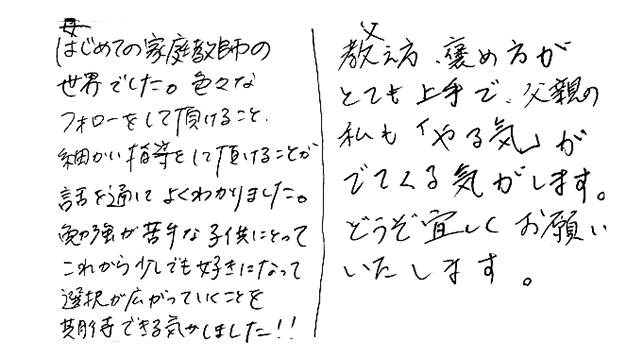 母
はじめての家庭教師の
世界でした。色々な
フォローをして頂けること、
細かい指導をして頂けることが
話を通じてよくわかりました。
勉強が苦手な子供にとって
これから少しでも好きになって
選択が広がっていくことを
期待できる気がしました!!
父
教え方、褒め方が
とても上手で、父親の
私も「やる気」が
でてくる気がします。
どうぞ宜しくお願い
いたします。